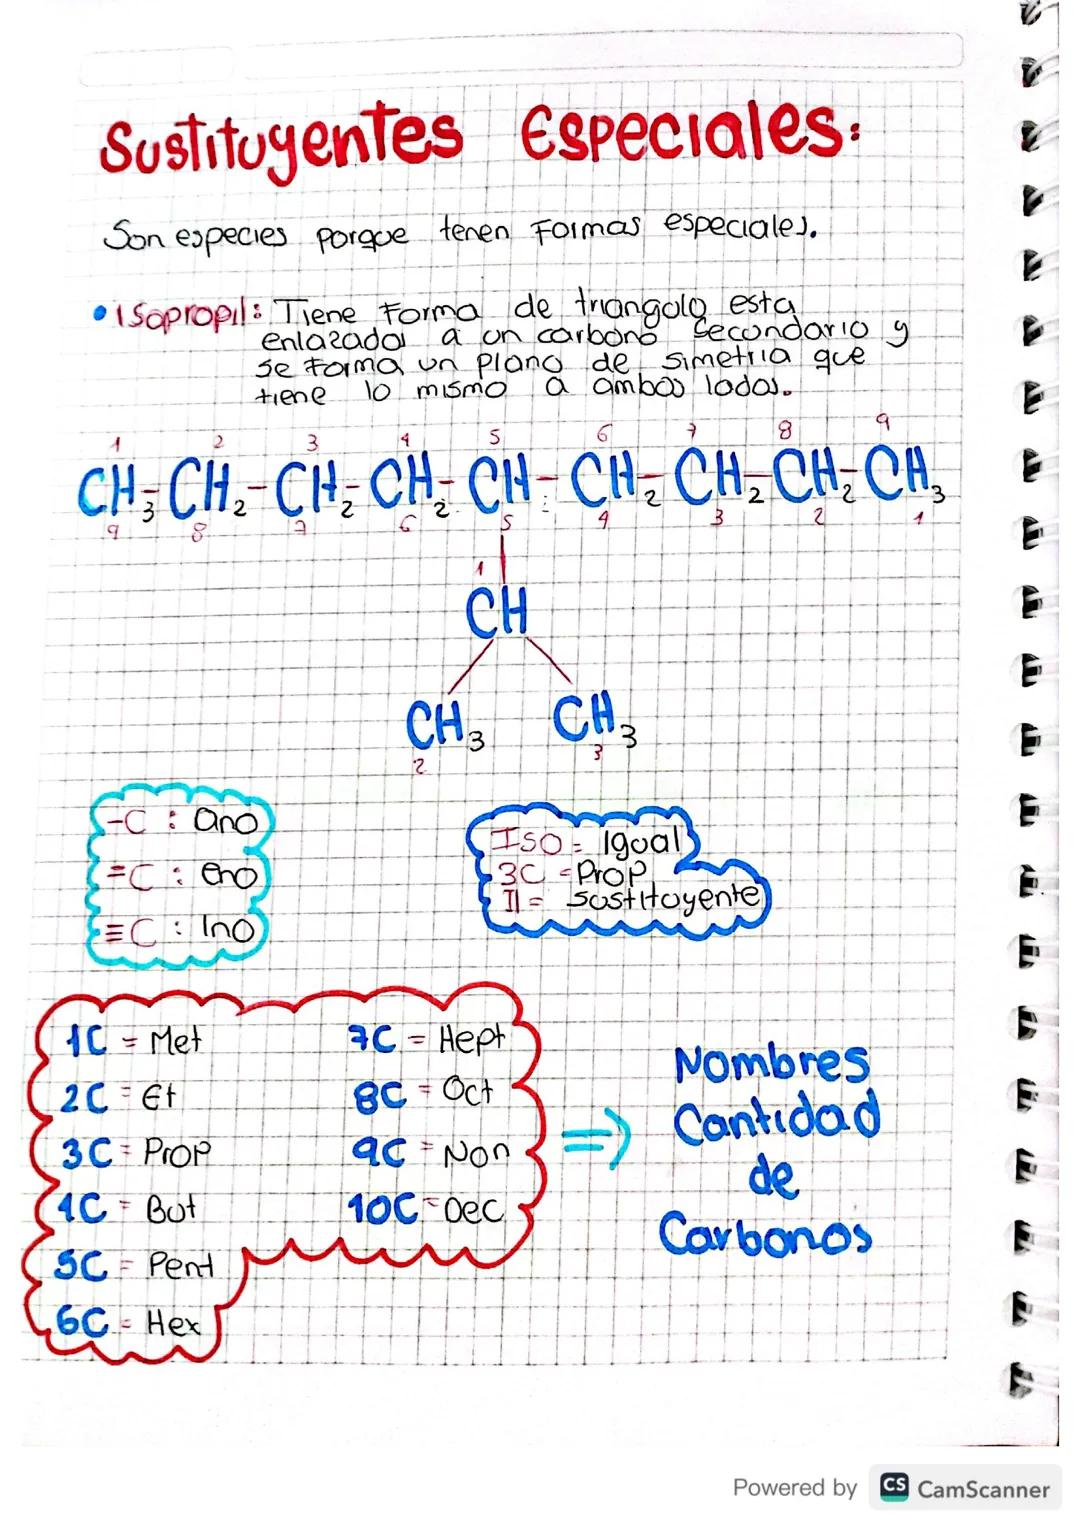 Sustituyentes Especiales:
Son especies porque tenen Formas especiales.
• Isopropil: Tiene Forma de triangolo esta
enlazador a un carbono Secundario y
se Forma un plano de simetria que
tiene lo mismo a ambos lados.
1 2 3 4 5 6 7 8 9
CH3-CH2-CH2-CH2-CH-CH2-CH2-CH2-CH3
9 8 7 6 5 4 3 2 1
1
CH
CH3 CH3
2 3
-C : ano
=C : eno
≡C : Ino
ISO = Igual
3C = Prop
Il = sustituyente
1C = Met 7C = Hept
2C = Et 8C = Oct
3C = Prop 9C = Non
4C = But 10C = Dec
5C = Pent
6C = Hex
⇒ Nombres
Cantidad
de
Carbonos
Powered by CS CamScanner